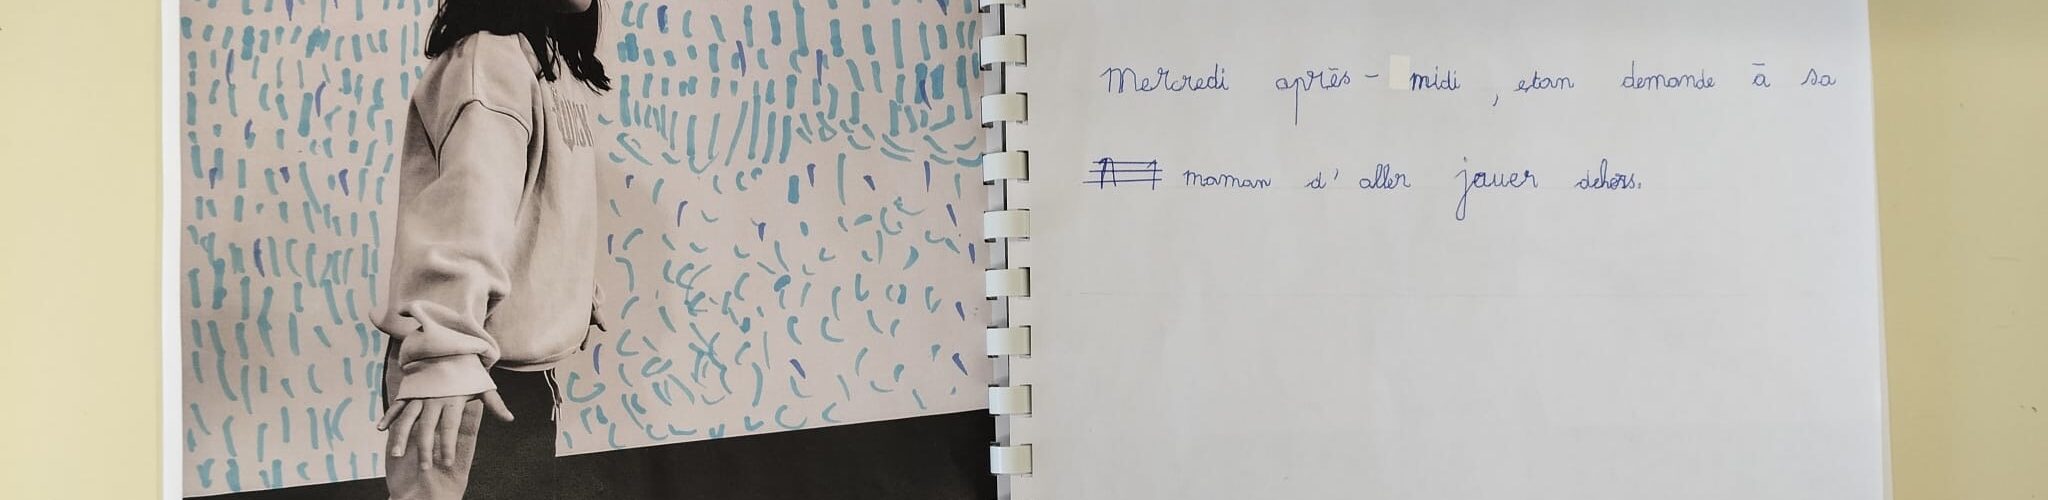 Mercredi après-midi, etan demande à sa
maman d'aller jouer dehors.